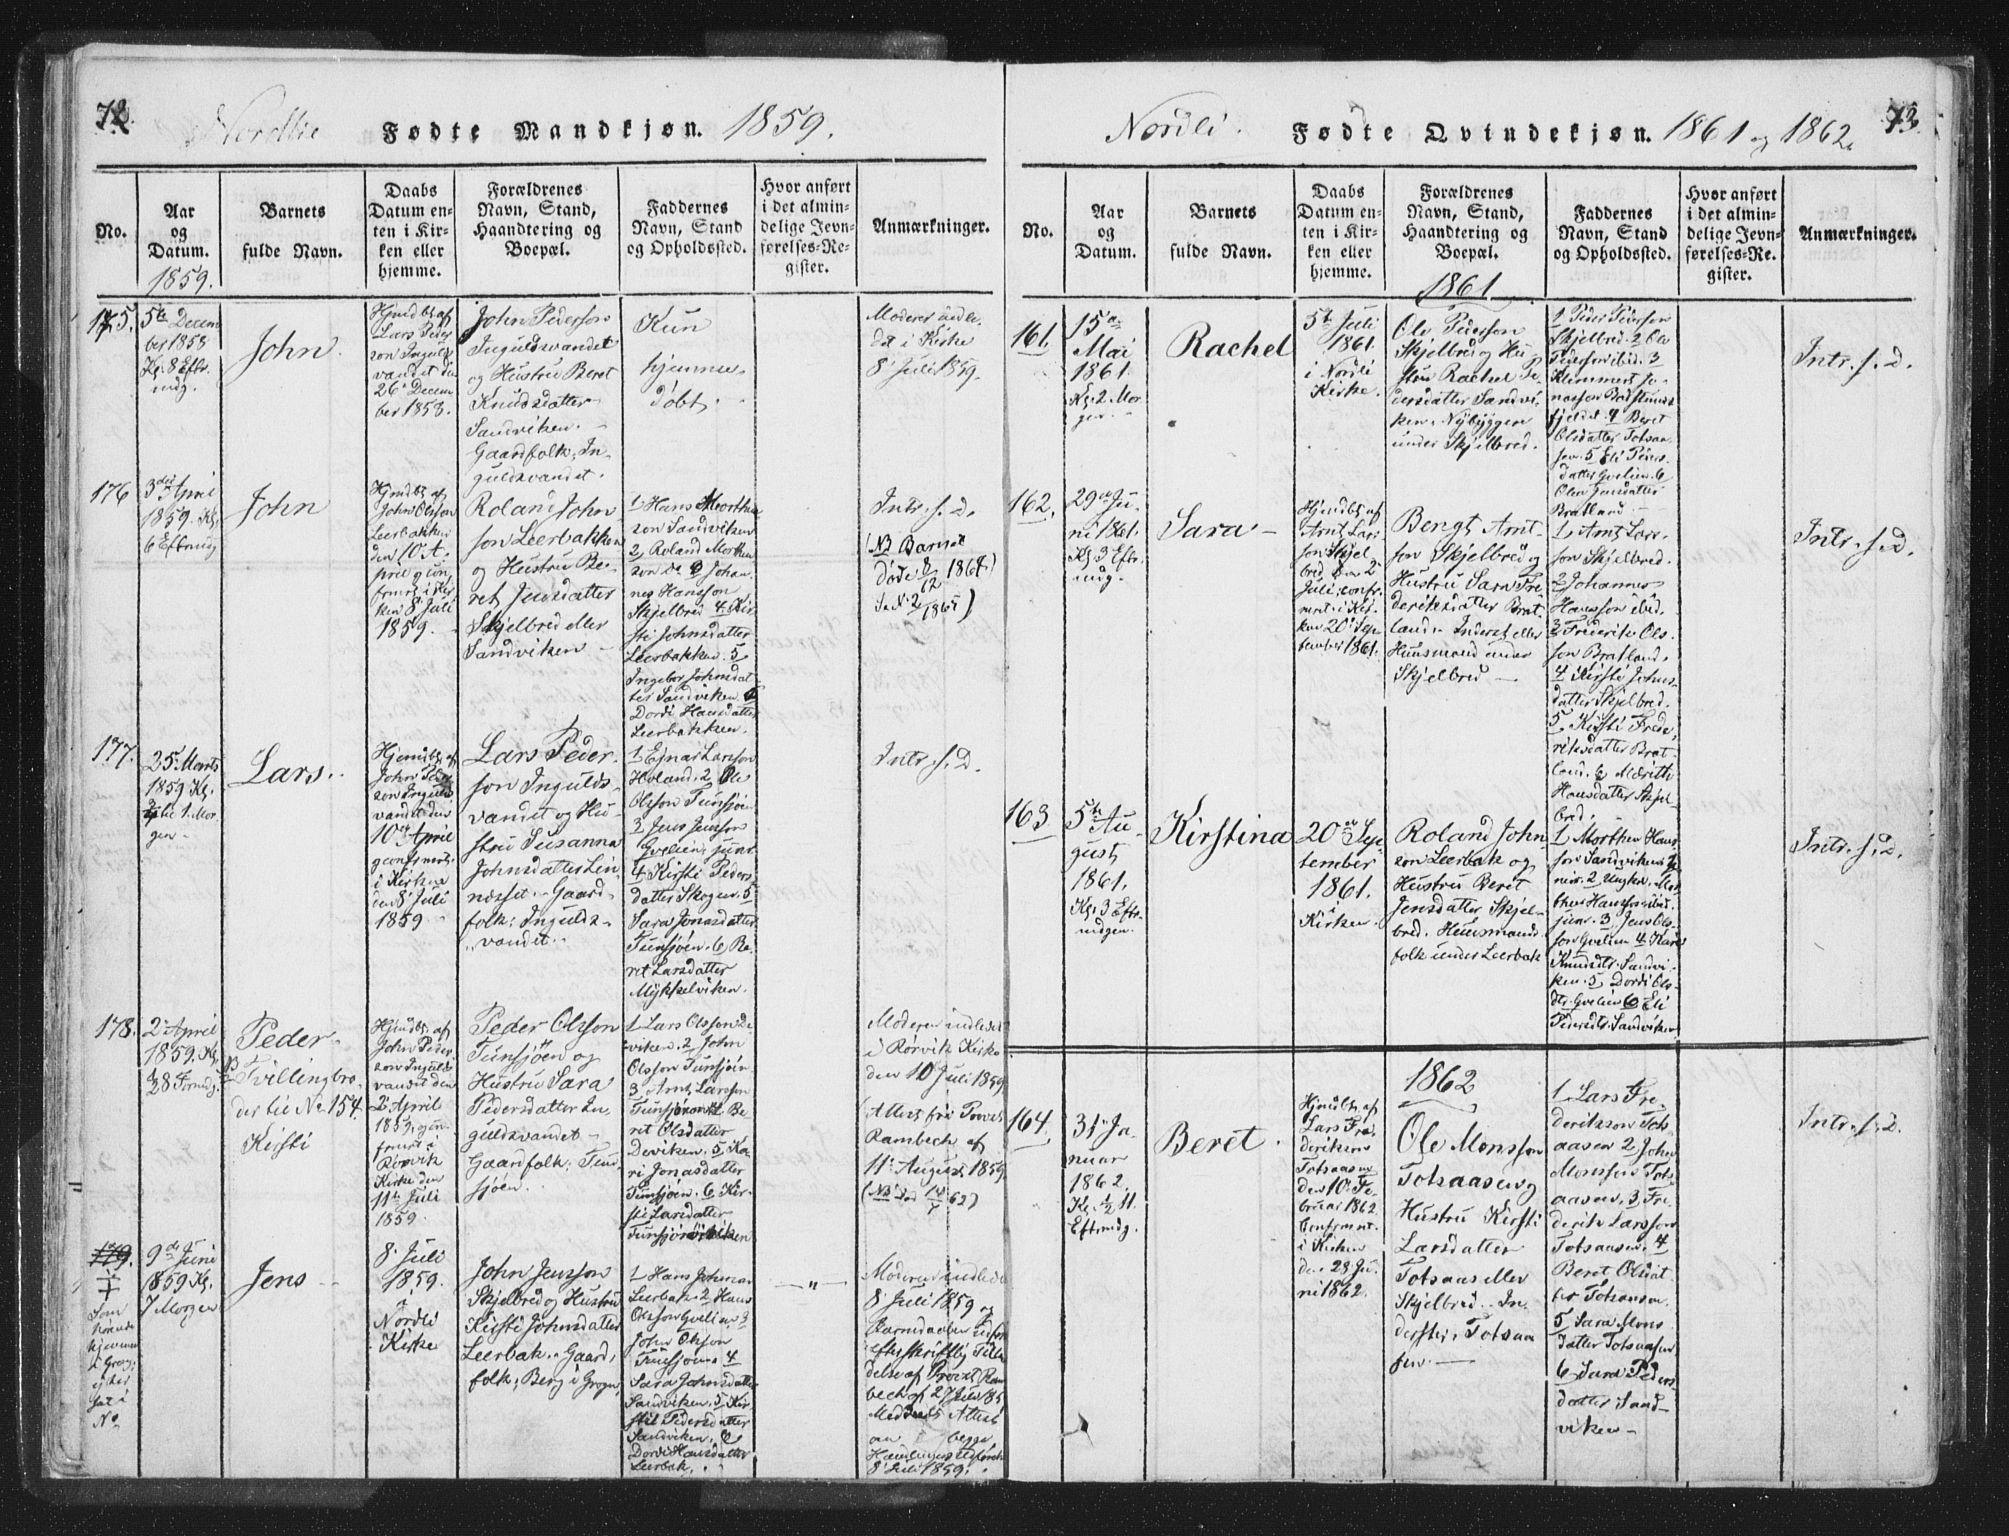 72.
Nordlie Fødte Mandkjøn. 1859.
No.
Aar
og
Datum.
1859.
Barnets
fulde Navn.
Daabs
Datum en-
ten i Kir-
ken eller
hjemme.
Forældrenes
Navn, Stand,
Haandtering og
Boepæl.
Faddernes
Navn, Stand
og Opholdssted.
Hvor anført
i det almin-
delige Jevn-
førelses-Re-
gister.
Anmærkninger.
175.
5te Decem
ber 1858
Kl. 8 Eftr.
mdg.
John
Hjmdbt af
Lars Peder
son Inguls
vandet den
26 Decem
ber 1858.
John Pederson
Inguldsvandet
og Hustru Beret
Knudsdatter
Sandviken. –
Gaardfolk, In-
guldsvandet.
Kun
hjemme-
døbt.
Moderen indle-
det i Kirke
8 Juli 1859.
176
3die April
1859. Kl.
6 Eftrmdg
John
Hjmdbt af
John Olsson
Leerbakken
den 10 A-
pril og con
frmrt i Kir
ken 8 Juli
1859.
Roland John-
son Leerbakken
og Hustru Be-
ret Jensdatter
Skjelbred eller
Sandviken –
1 Hans Morthen
son Sandviken
2, Roland Morthen
son 3 Johan-
nes Hansson
Skjelbred 4 Kir-
sti Johnsdatter
Leerbakken. 5
Ingebor Johnsdat-
ter Sandviken 6
Dordi Hansdatter
Leerbakken.
Intr. s. D.
(NB Barnet
døde 8/12 1864)
1865)
177.
25 Marts
1859 Kl.
1 Mor-
gen –
Lars.
Hjemdbt af
John Peder
son Inguls
vandet den
10 April
og confrmrt
i Kirken
den 8 Juli
1859
Lars Peder-
son Inguldsvandet og Hu-
stru Susanna
Johnsdatter Lin-
næsset. – Gaard-
folk: Ingulds-
vandet.
1 Ejnar Larsson
Hovland. 2 Ole
Olsson Tunsjøen
3 Jens Jensson
Gvelien, junr
4 Kirsti Peders
datter Skogen. 5
Sara Jonasdatter
Tunsjøen. 6 Be-
ret Larsdatter
Mykkelviken.
Intr. s. D.
178.
2 April
1859. Kl.
8 Formdg.
Peder
NB
Tvillingbro-
der til No 154
Kirsti
Hjmdbt af
John Peder-
son Inguls
vandet den
2 April
1859, og con
frmrt i
Rørvik
Kirke den
11te Juli
1859.
Peder Olsson
Tunsjøen og
Hustru Sara
Pedersdatter In-
guldsvandet –
Gaardfolk: Tun-
sjøen.
1 Lars Olsson De-
viken. 2 John
Olsson Tunsjøen
3 Arnt Larsson
Tunsjøen 4 Be-
ret Olsdatter
Deviken. 5 Ka-
ri Jonasdatter
Tunsjøen. 6 Kir-
sti Larsdatter
Moderen indledet
i Rørvik Kirke
den 10 Juli 1859
(Attest fra Provst
Rambech af
11 August 1859
179.
Som
hjemme
No
9de Juni
1859 Kl.
7 Morgen
Jens
8 Juli
1859.
i
Nordli
Kirke
John Jensson
Skjelbred og Hustru
Kirsti Johnsdatter
Leerbak. – Gaard-
folk, Berg i Grogn.
1 Hans Johns-
Leerbak. 2 Hans
Olsson Gvelien 3
John Olsson
Tunsjøen 4
Sara Johnsdatter
Sandviken. 5 Kir-
sti Pedersdatter
Sandviken. 6
Dordi Hansdatter
Leerbak.
– " –
Moderen indledet
8 Juli 1859 og
Barnedaaben udført
efter skriftlig Tilla-
delse af Provst Ram
bech af 27 Juni 1859
Meddeelt Attest
om begge
Handlingers Udførelse
8 Juli 1859.
73.
Nordli. Fødte Qvindekjøn. 1861 og 1862.
No.
Aar
og
Datum.
Barnets
fulde Navn.
Daabs
Datum en-
ten i Kir-
ken eller
hjemme.
Forældrenes
Navn, Stand,
Haandtering og
Boepæl.
Faddernes
Navn, Stand
og Opholdssted.
Hvor anført
i det almin-
delige Jevn-
førelses-Re-
gister.
Anmærkninger.
1861
161.
15de
Mai
1861
Kl. 2 Mor
gen –
Rachel
5te Juli
1861.
i Nordli
Kirke.
Ole Pederson
Skjelbred og Hu-
stru Rachel Pe-
dersdatter Sandvi-
ken. Nybyggere
under Skjelbred.
1 Peder Pederson
Skjelbred. 2 Ole
Pederson ibid. 3
Klemmet Jo-
nasson
fjeldet. 4 Beret
Olsdatter Totsaa-
sen. 5 Eli Peders-
datter Gvelien. 6
Olea Jensdatter
Bratland –
Intr. s. D.
162.
29de Ju-
ni 1861.
Kl. 3 Eftr-
mdg.
Sara –
Hjmdbt af
Arnt Lars
son Skjel-
bred den 2
Juli, confr-
mrt i Kir-
ken 20 Sep-
tember 1861.
Bengt Arnt-
son Skjelbred og
Hustru Sara Fre
deriksdatter Brat
land – Inderst eller
Huusmand under
Skjelbred –
1 Arnt Lars-
son Skjelbred.
2 Johannes
Hansson ibid.
3 Frederik Ols-
son Bratland.
4 Kirsti Johns-
datter Skjelbred.
5 Kirsti Frede-
riksdatter Brat
land. 6 Merith
Hansdatter Skjel-
bred.
Intr. s. D.
163
5te Au-
gust
1861.
Kl. 3 Eftr-
mdgen.
Kirstina
20de Sep-
tember
1861.
i
Kirken.
Roland John
son Leerbak og
Hustru Beret
Jensdatter Skjel-
bred. Huusmands
folk under Leerbak
1 Morthen Hans
son Sandviken
2 Ungkr. Mor
then Hansson ibid.
junr. 3 Jens Ols-
son Gvelien 4 Kari
Knudsdtr. Sandvi-
ken. 5 Dordi Ols-
dtr. Gvelien 6 Eli
Pedersdtr. Sandviken
Intr. s. D.
1862
164.
31 Ja-
nuar
1862.
Kl. ½ 11.
Eftrmdg.
Beret.
Hjmdbt af
Lars Fre-
derikson
Totsaasen
den 10 Fe-
bruar 1862
Confrmrt.
i Kirken
den 28 Ju-
ni 1862.
Ole Monsson
Totsaasen og
Hustru Kirsti
Larsdatter
Totsaas eller
Skjelbred. In-
derster, Totsaa
sen. –
1 Lars Fre-
deriksson Tots
aasen 2 John
Monsson Tots
aasen, 3 Fre-
derik Larsson
Totsaasen. 4
Beret Olsdat-
ter Totsaasen.
5 Sara Mons
datter Totsaasen
6 Sara Peders
datter Sand-
viken –
Intr. s. D.